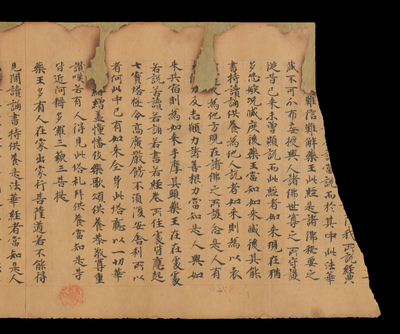 我所說經典
說當說而於其中此法華
難信難解藥王此經是諸佛秘要之
藏不可分布妄授與人諸佛世尊之所守護
從昔已來未曾顯說而此經者如來現在猶
多怨嫉況滅度後藥王當知如來滅後其能
書持讀誦供養為他人說者如來則為以衣
又為他方現在諸佛之所護念是人有
及志願力諸善根力當知是人與如
來共宿則為如來手摩其頭藥王在在處處
若說若讀若誦若書若經卷所住處皆應起
七寶塔極令高廣嚴飾不須復安舍利所以
者何此中已有如來全身此塔應以一切華
繒蓋幢幡伎樂歌頌供養恭敬尊重
讚嘆若有人得見此塔禮拜供養當知是等
皆近阿耨多羅三藐三菩提
藥王多有人在家出家行菩薩道若不能得
見聞讀誦書持供養是法華經者當知是人